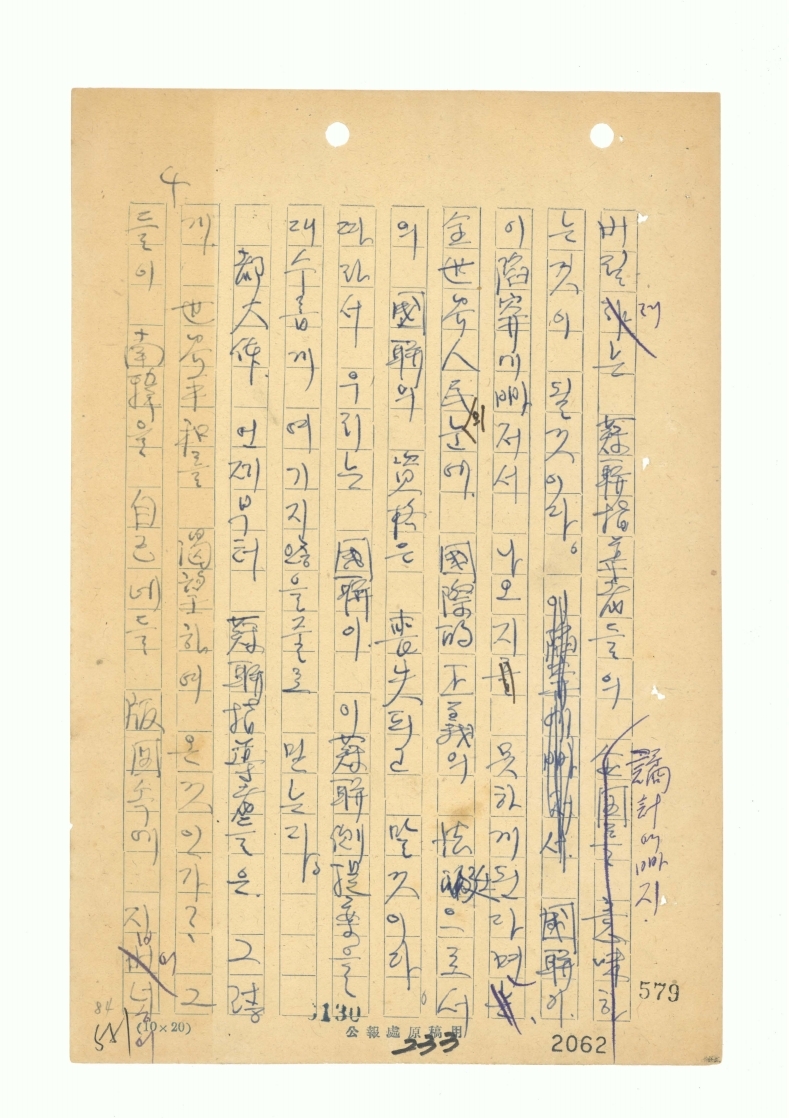 버릴래는 蘇聯指導者들의 謀計에빠지
는 것이 될것이라。國聯이
이 陷穽에빠저서 나오지 못하게된다면
全世界人民의눈에 國際的 正義의 法廷으로서
의 國聯의 資格은 喪失되고 말것이라
따라서 우리는 國聯이 이蘇聯側提案을
대수롭게 여기지않을줄로 믿는다。
都大体 언제부터 蘇聯指導者들은 그렇
게 世界平和를 渴望하여 온것인가? 그
들이 南韓을 自己네들 版圖속에 집어넣
4
579
2062
5130
233
公報處原稿用
(10×20)
84